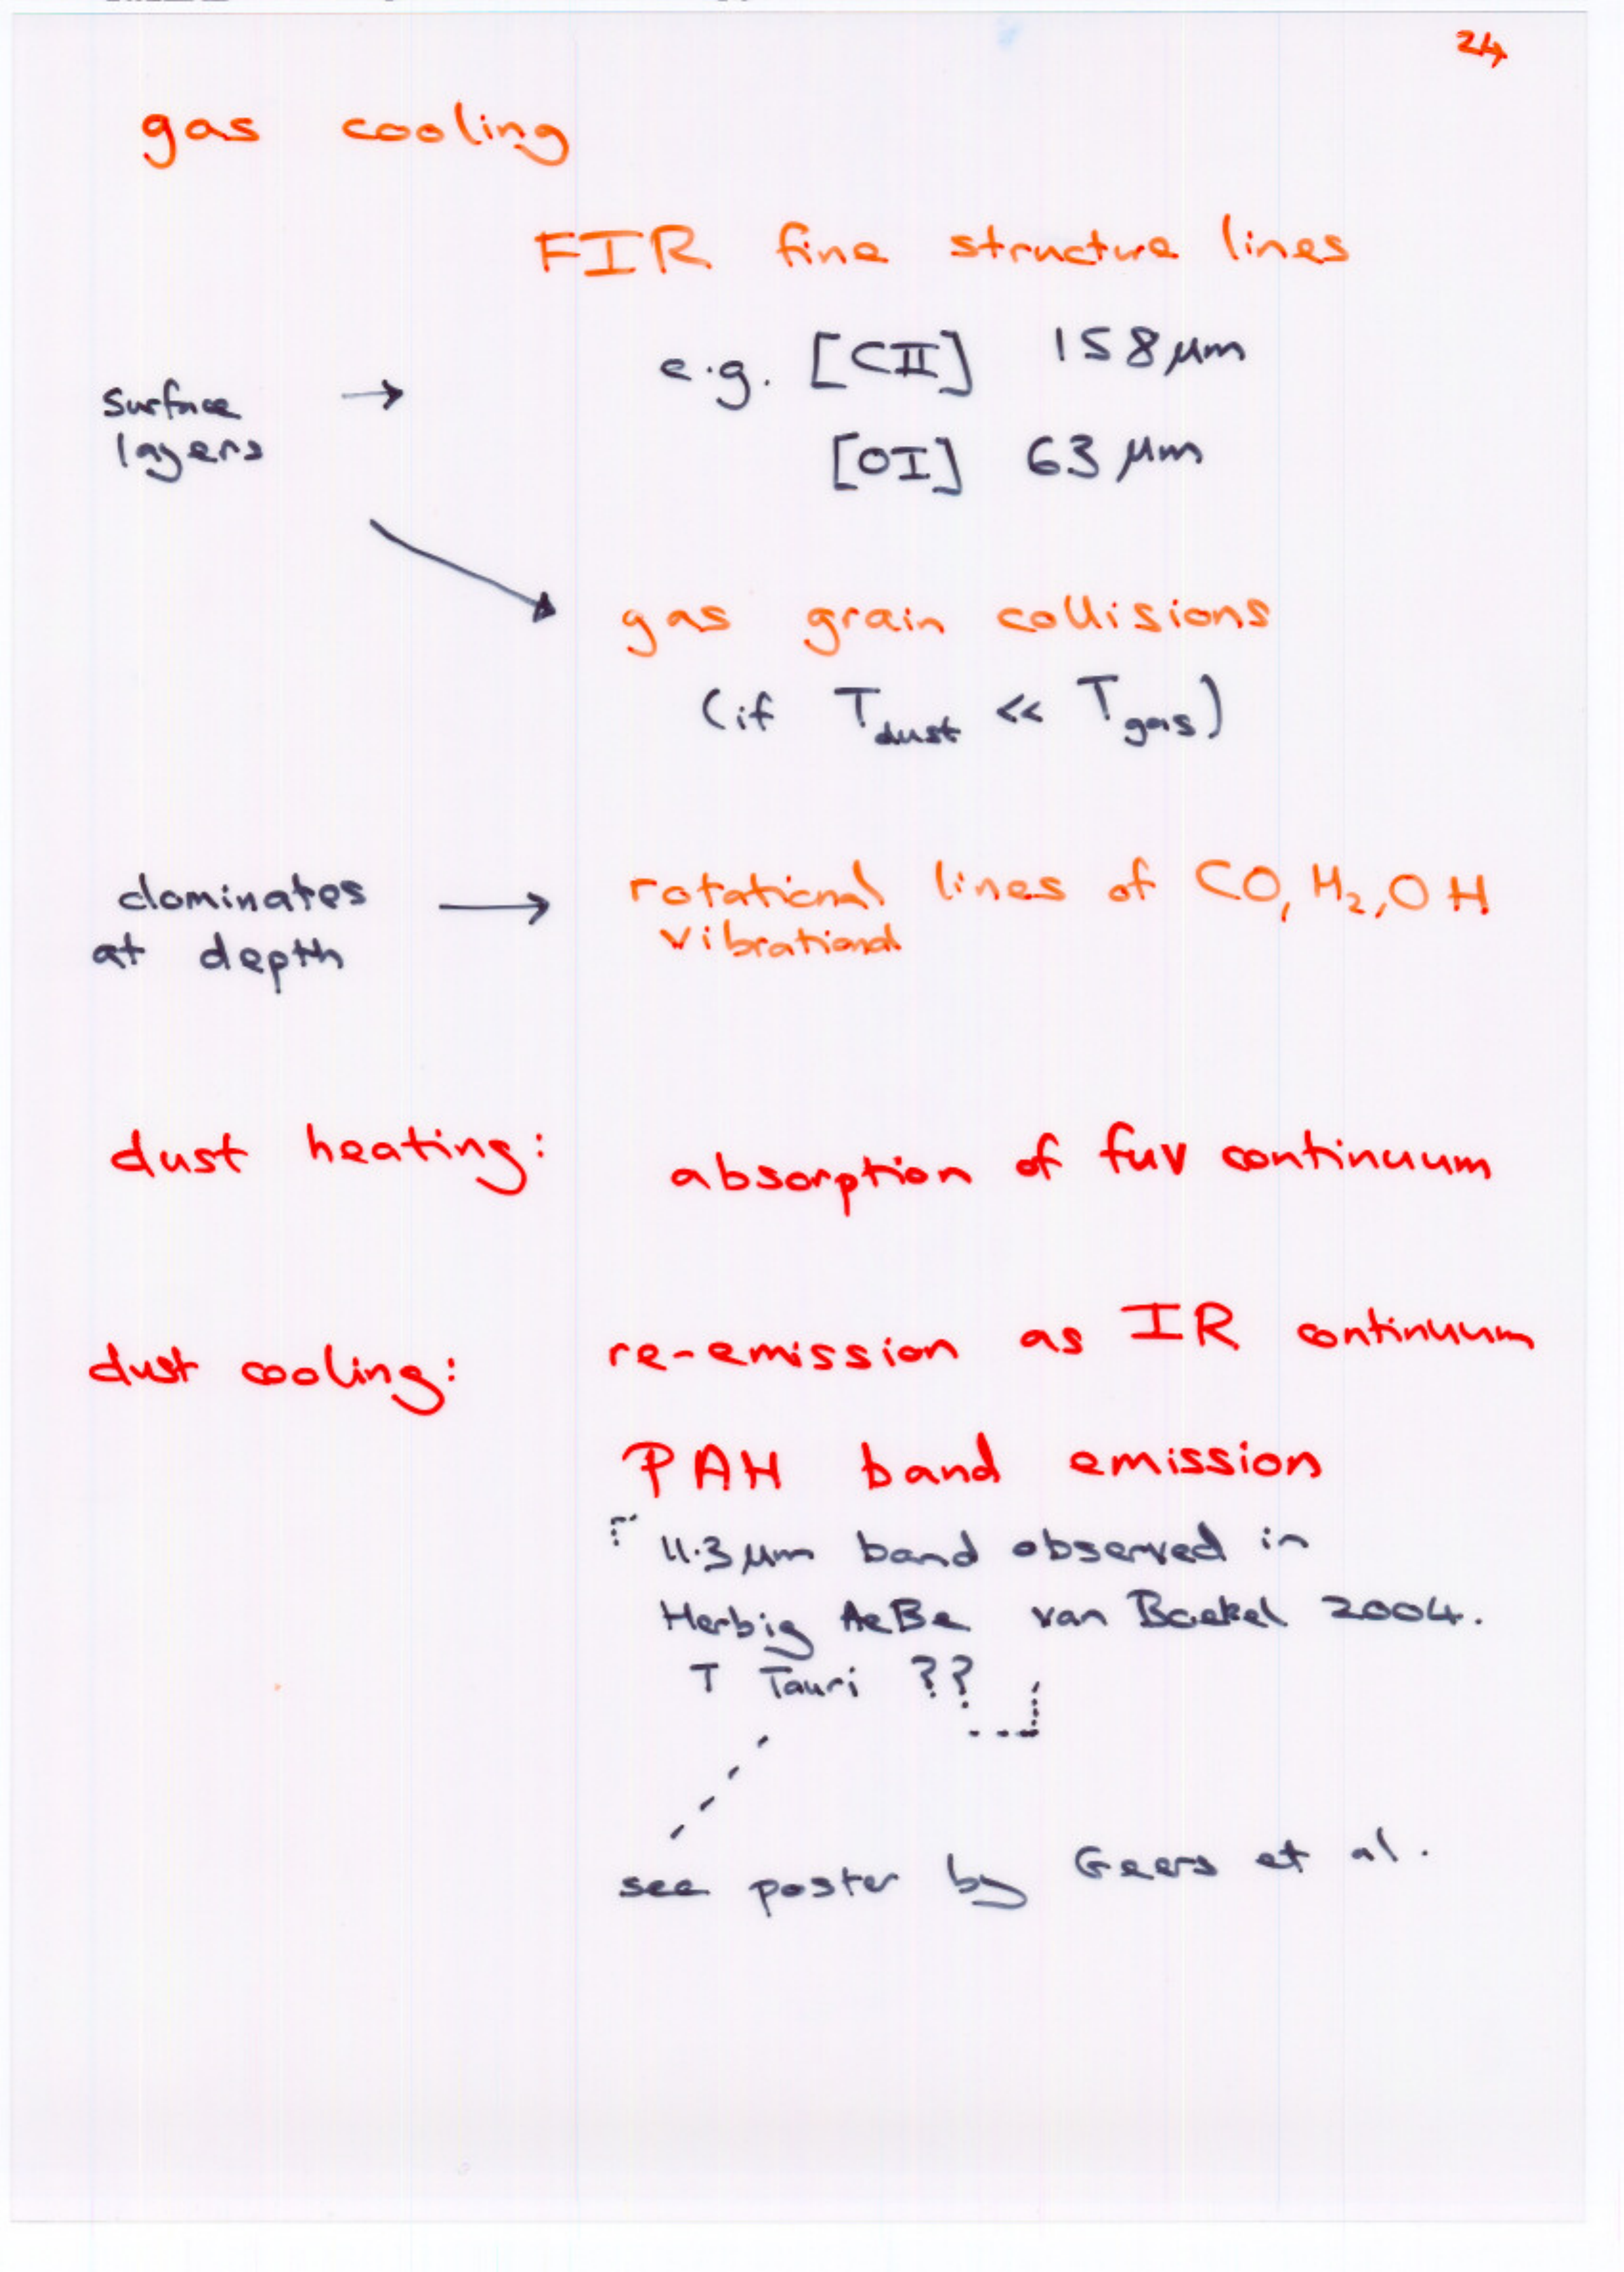 24
gas cooling
FIR fine structure lines
e.g. [CII] 158 μm
surface →
layers
[OI] 63 μm
gas grain collisions
(if T_dust << T_gas)
dominates → rotational lines of CO, H₂, OH
at depth vibrational
dust heating: absorption of fuv continuum
dust cooling: re-emission as IR continuum
PAH band emission
11.3 μm band observed in
Herbig AeBe van Boekel 2004.
T Tauri ??
see poster by Geers et al.